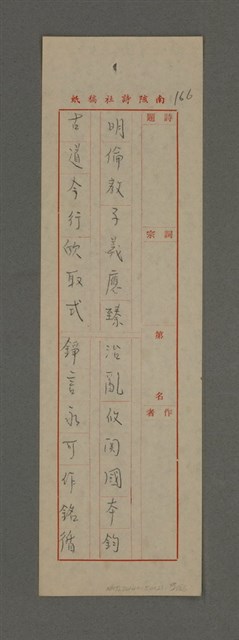 南陔詩社稿紙
166
詩題
詞宗
第 名
作者
明倫教子義應臻 治亂攸関國本鈞
古道今行欣取式 錚言永可作銘循